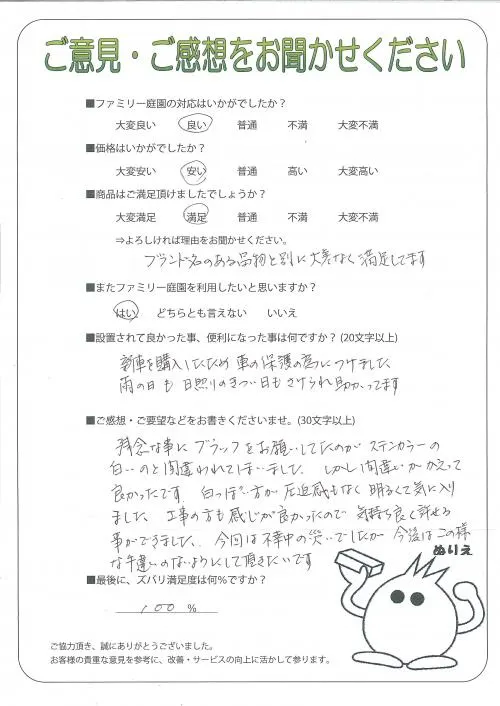 ご意見・ご感想をお聞かせください
■ファミリー庭園の対応はいかがでしたか？
大変良い 良い 普通 不満 大変不満
■価格はいかがでしたか？
大変安い 安い 普通 高い 大変高い
■商品はご満足頂けましたでしょうか？
大変満足 満足 普通 不満 大変不満
⇒よろしければ理由をお聞かせください。
ブランド名のある品物と別に大差なく満足してます
■またファミリー庭園を利用したいと思いますか？
はい どちらとも言えない いいえ
■設置されて良かった事、便利になった事は何ですか？(20文字以上)
新車を購入したため車の保護の為につけました
雨の日も日照りのきつい日もさけられ助かってます
■ご感想・ご要望などをお書きくださいませ。(30文字以上)
残念な事にブラックをお願いしてたのがステンカラーの
白いのと間違われてしまいました しかし間違いがかえって
良かったです 白っぽい方が圧迫感もなく明るくて気に入り
ました 工事の方も感じが良かったので気持ち良く許せる
事ができました、今回は不幸中の災いでしたが今後はこの様
な手違いのないようにして頂きたいです
ぬりえ
■最後に、ズバリ満足度は何％ですか？
100 %
ご協力頂き、誠にありがとうございました。
お客様の貴重な意見を参考に、改善・サービスの向上に活かして参ります。